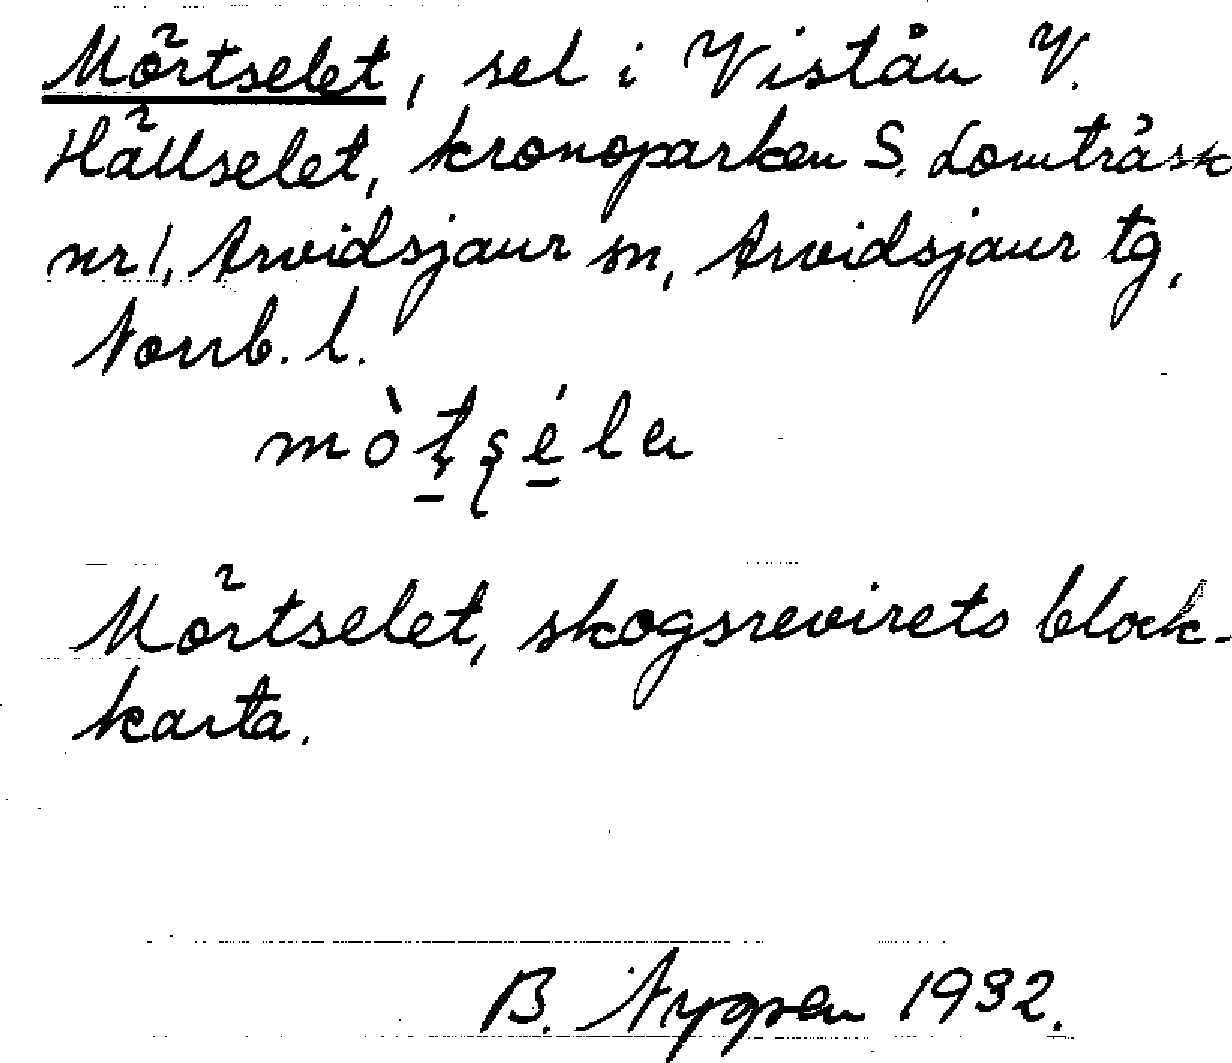 Mörtselet, sel i Viståu V.
Hällselet, kronoparken S. Lomträsk
nr 1, Arvidsjaur sn, Arvidsjaur tg,
Norrb. l.
Mörtselet, skogsrevirets block-
karta.
B. Nygren 1932.